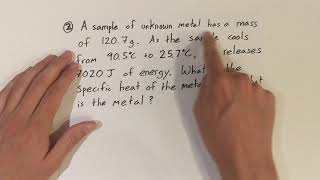 ② A sample of unknown metal has a mass
of 120.7g. As the sample cools
from 90.5°C to 25.7°C, releases
7020 J of energy. What the
specific heat of the metal
is the metal?